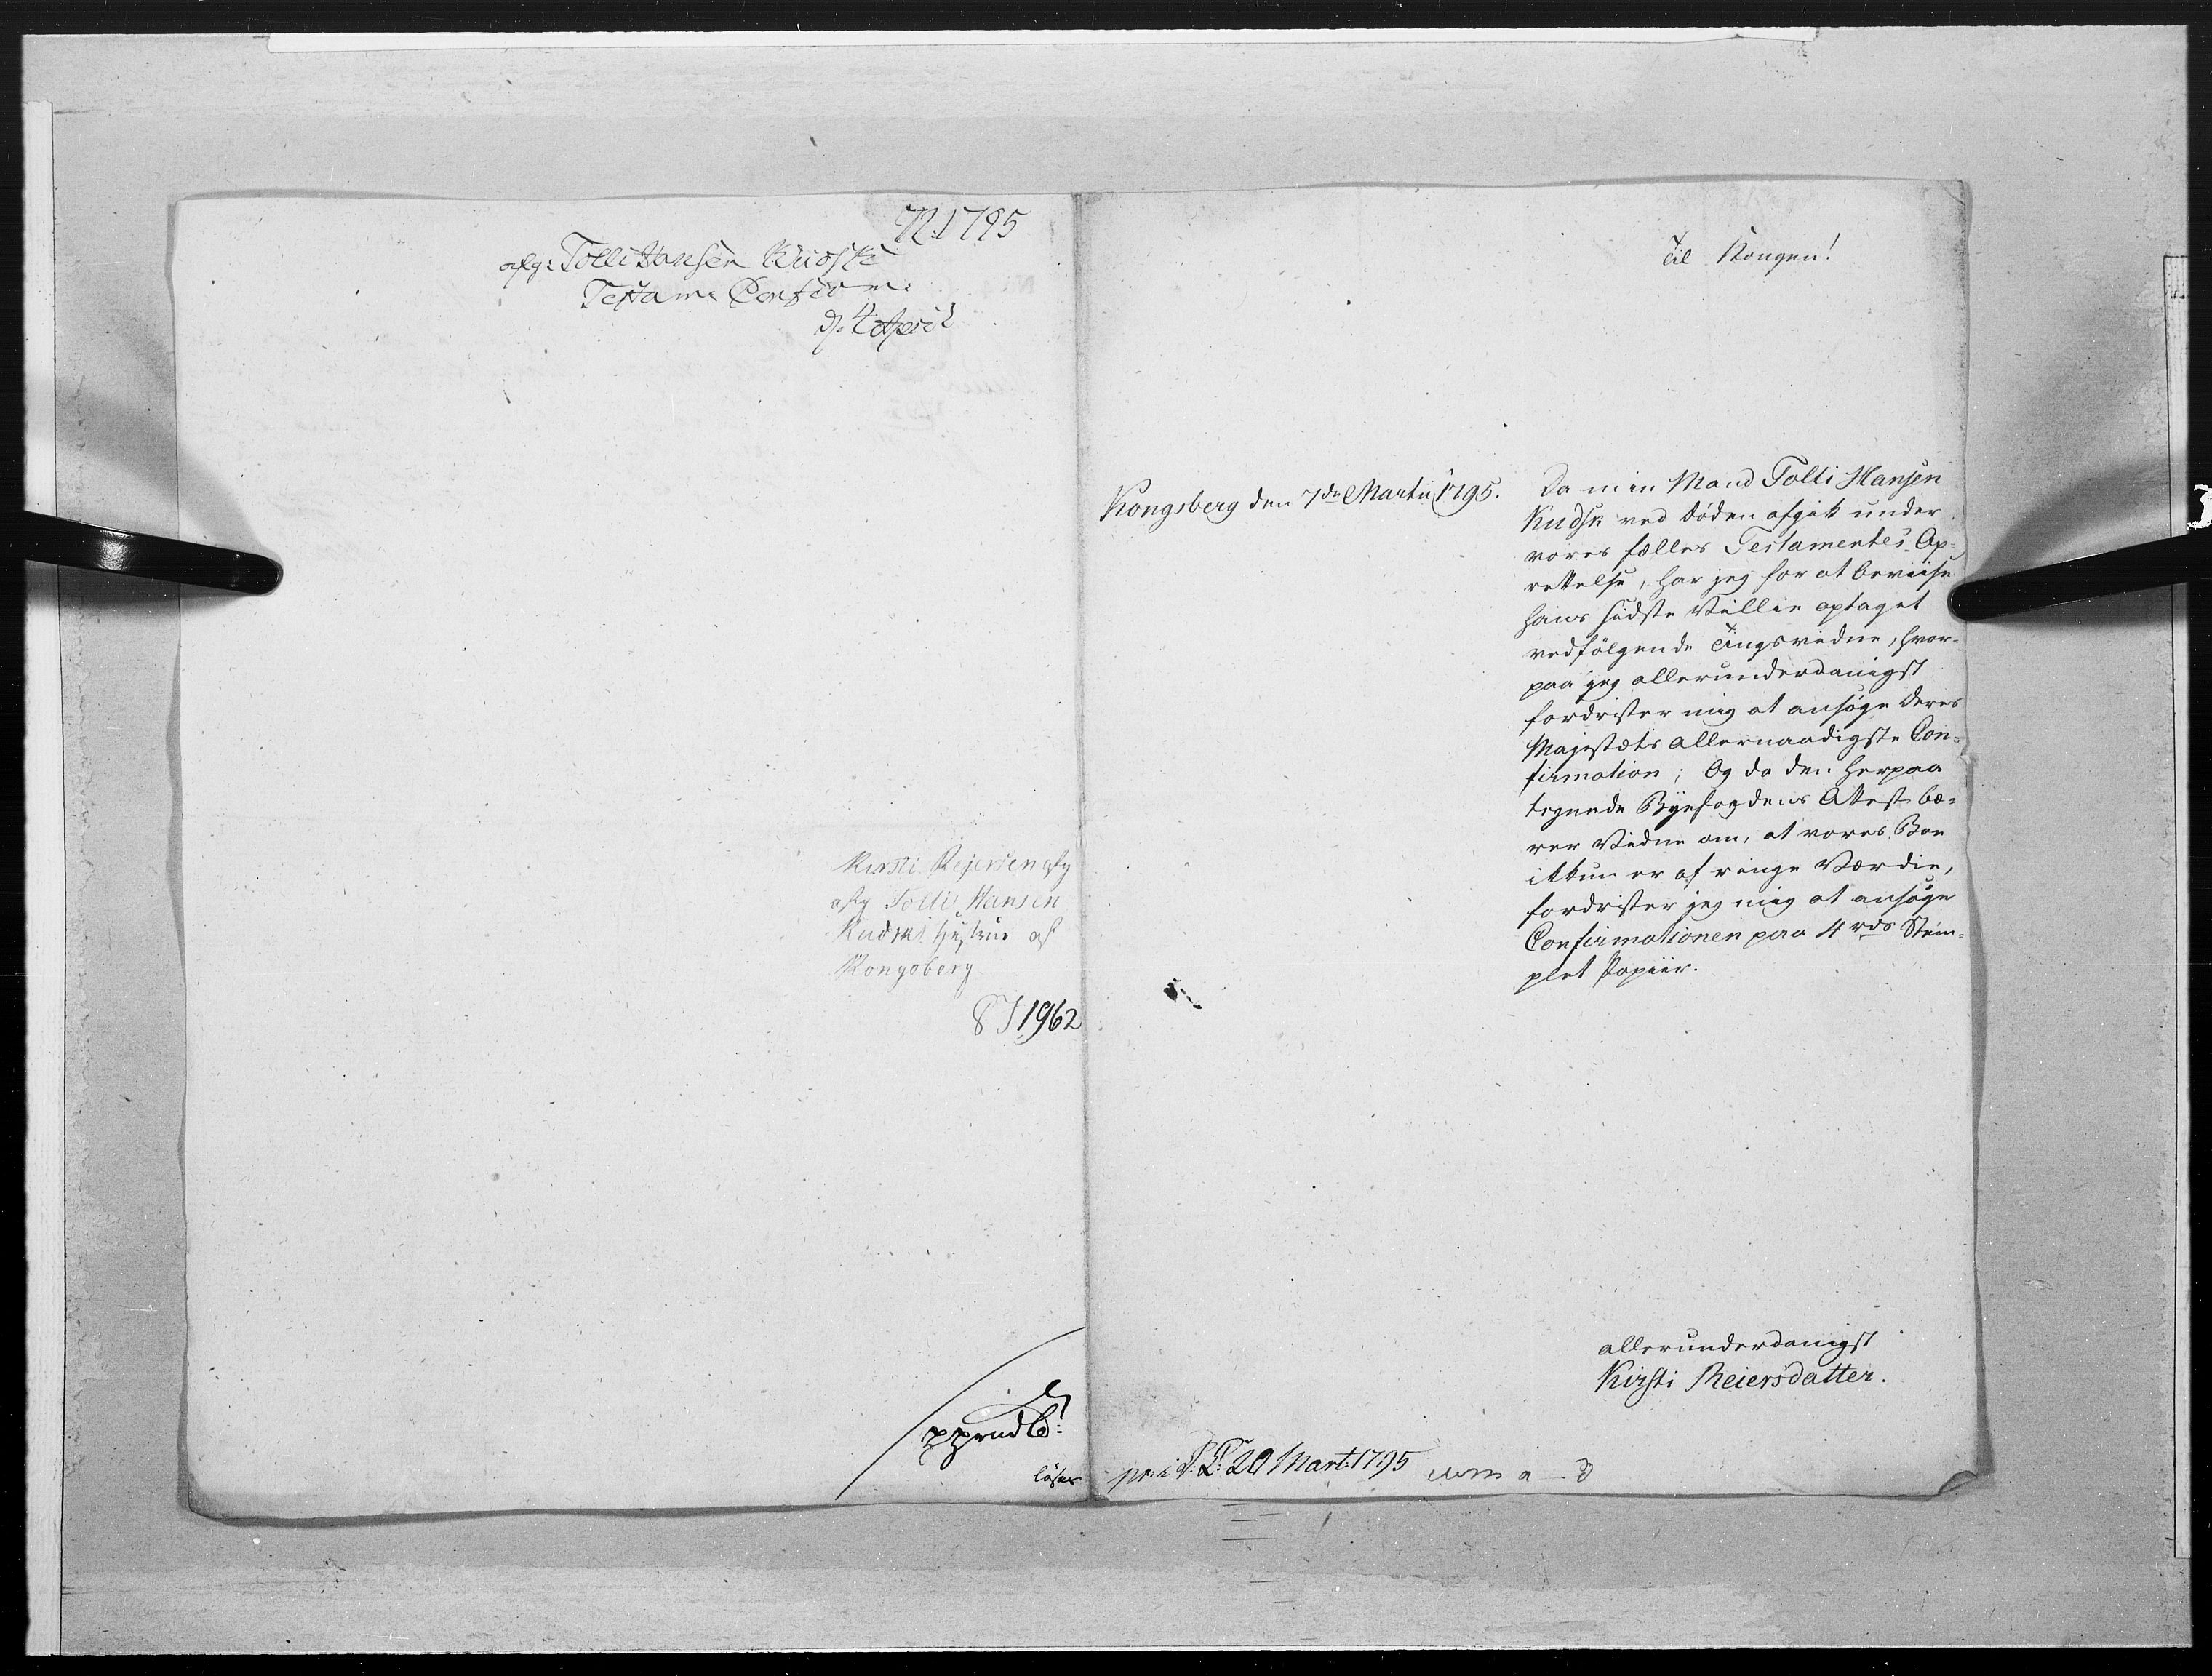 N: 1795
afg: Tolli Hansen Kudsk
Testam: Conf:
d: 4 April
Kirsti Rejersen
afg Tolli Hansen
Kudsks Hustrue af
Kongsberg
1962
Til Kongen!
Kongsberg den 7de Martii 1795.
Da min Mand Tolli Hansen
Kudsk ved Døden afgik under
vores fælles Testamentes Op-
rettelse, har jeg for at beviise
hans sidste Villie optaget
vedfølgende Tingsvidne, hvor-
paa jeg allerunderdanigst
fordrister mig at ansøge Deres
Majestæts allernaadigste Con-
firmation; Og da den herpaa
tegnede Byefogdens Attest bæ-
rer Vidne om, at vores Boe
ikkun er af ringe Værdie,
fordrister jeg mig at ansøge
Confirmationen paa 4 rds Stem-
plet Papiir.
allerunderdanigst
Kirsti Reiersdatter.
20 Mart: 1795